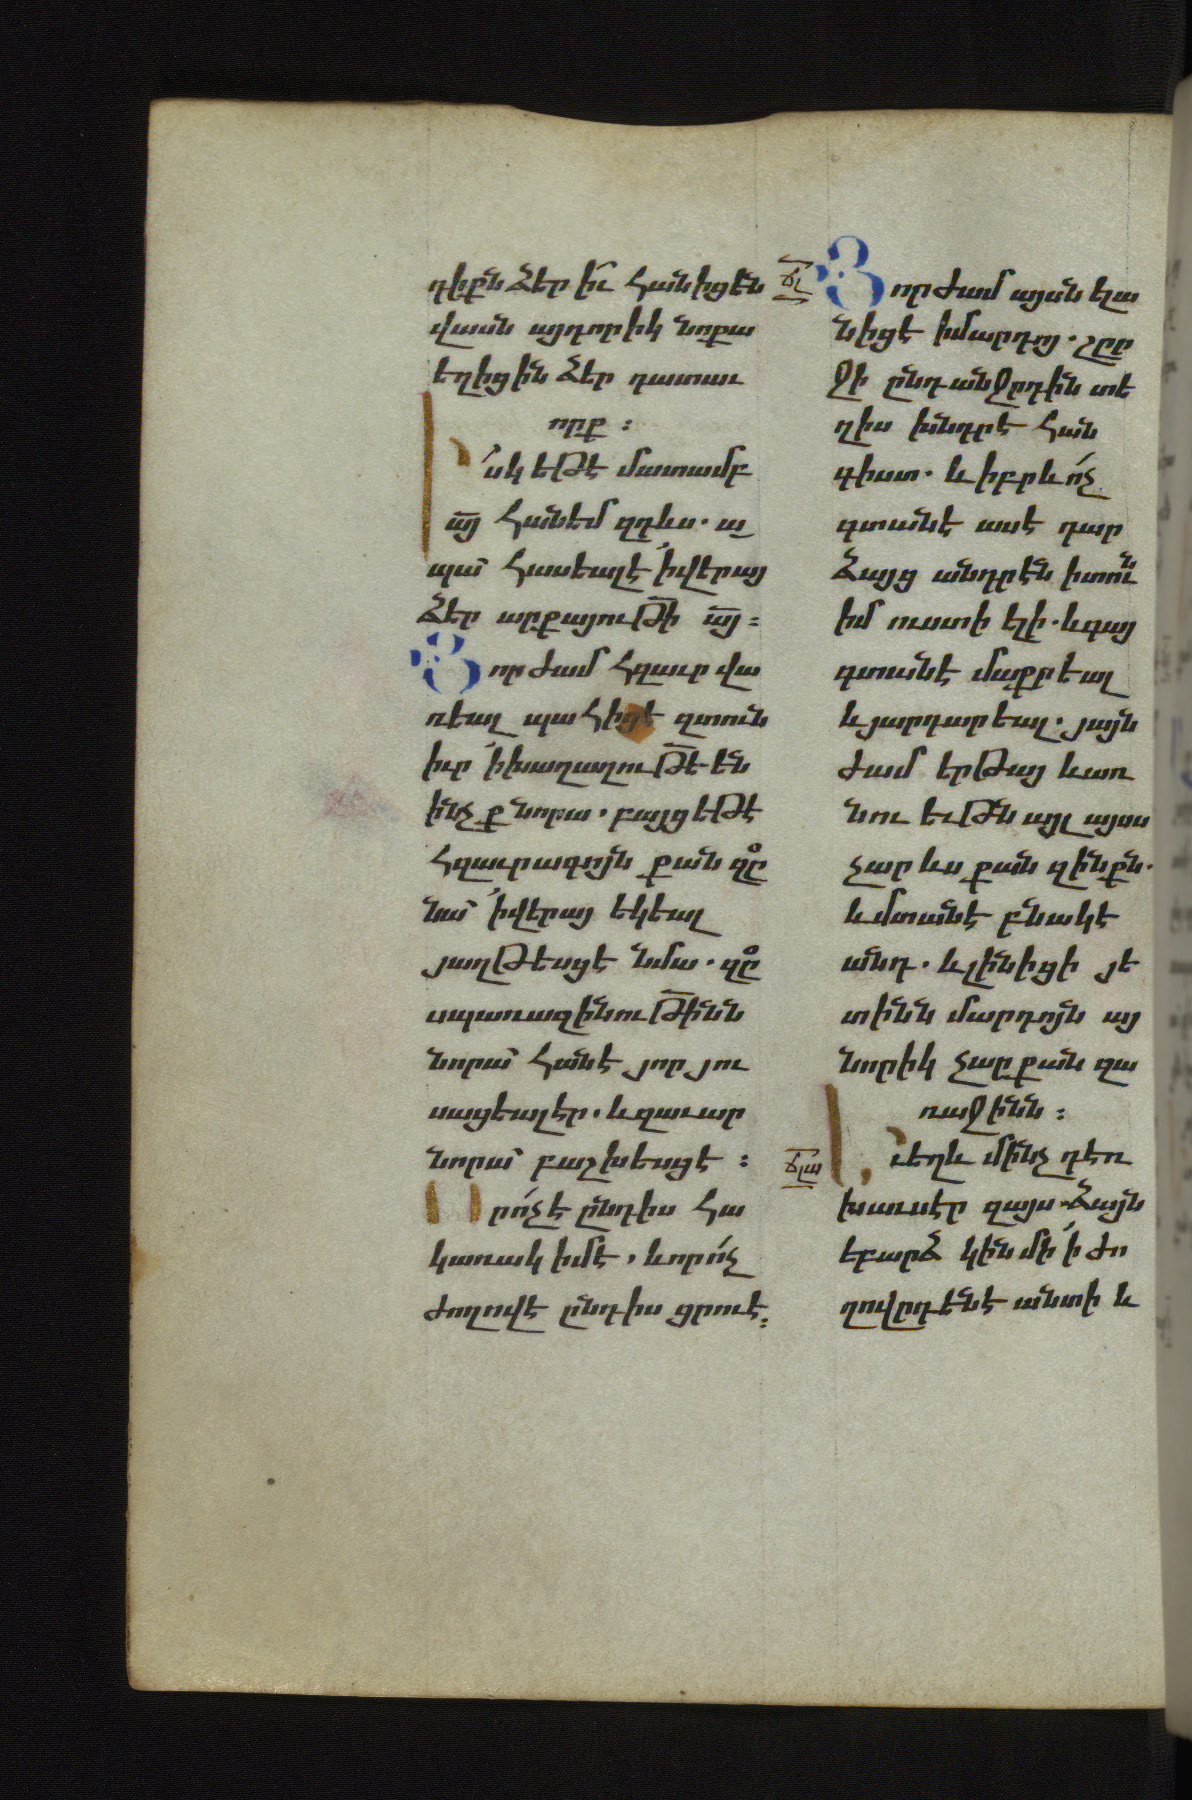 դիքն ձեր ի՜ւ հանիցեն
վասն այդորիկ նոքա
եղիցին ձեր դատաւ
որք ։
Իսկ եթէ մատամբ
ա՜յ հանեմ զդևս. ա
պա՛ հասեալ է ՛ի վերայ
ձեր արքայութի՜ ա՜յ ։
Յորժամ հզաւր վա
ռեալ պահիցէ զտուն
իւր ՛ի խաղաղութե՜ են
ինչք նորա. բայց եթէ
հզաւրագոյն քան զը
նա՛ ՛ի վերայ եկեալ
յաղթեսցէ նմա. զը
սպառազինութի՜նն
նորա՛ հանէ յոր յու
սացեալ էր. և զաւար
նորա՛ բաշխեսցէ ։
Որ ո՛չ է ընդիս հա
կառակ իմ է. և որ ո՛չ
ժողովէ ընդիս ցրուէ ։
ՃԼ
Յորժամ այսն ելա
նիցէ ի մարդոյ. շըր
ջի ընդ անջրդին տե
ղիս խնդրէ հան
գիստ. և իբրև ո՛չ
գտանէ ասէ դար
ձայց անդրէն ի տուն
իմ ուստի ելի. և գայ
գտանէ մաքրեալ
և յարդարեալ. յայն
ժամ երթայ և առ
նու եւթն այլ այսս
չար ևս քան զինքն.
և մտանէ բնակէ
անդ. և լինիցի յե
տինն մարդոյն այ
նորիկ չար քան զա
ռաջինն ։
ՃԼԱ
Եւ եղև մինչ դեռ
խաւսէր զայս. ձայն
եբարձ կին մի ՛ի ժո
ղովրդենէ անտի և